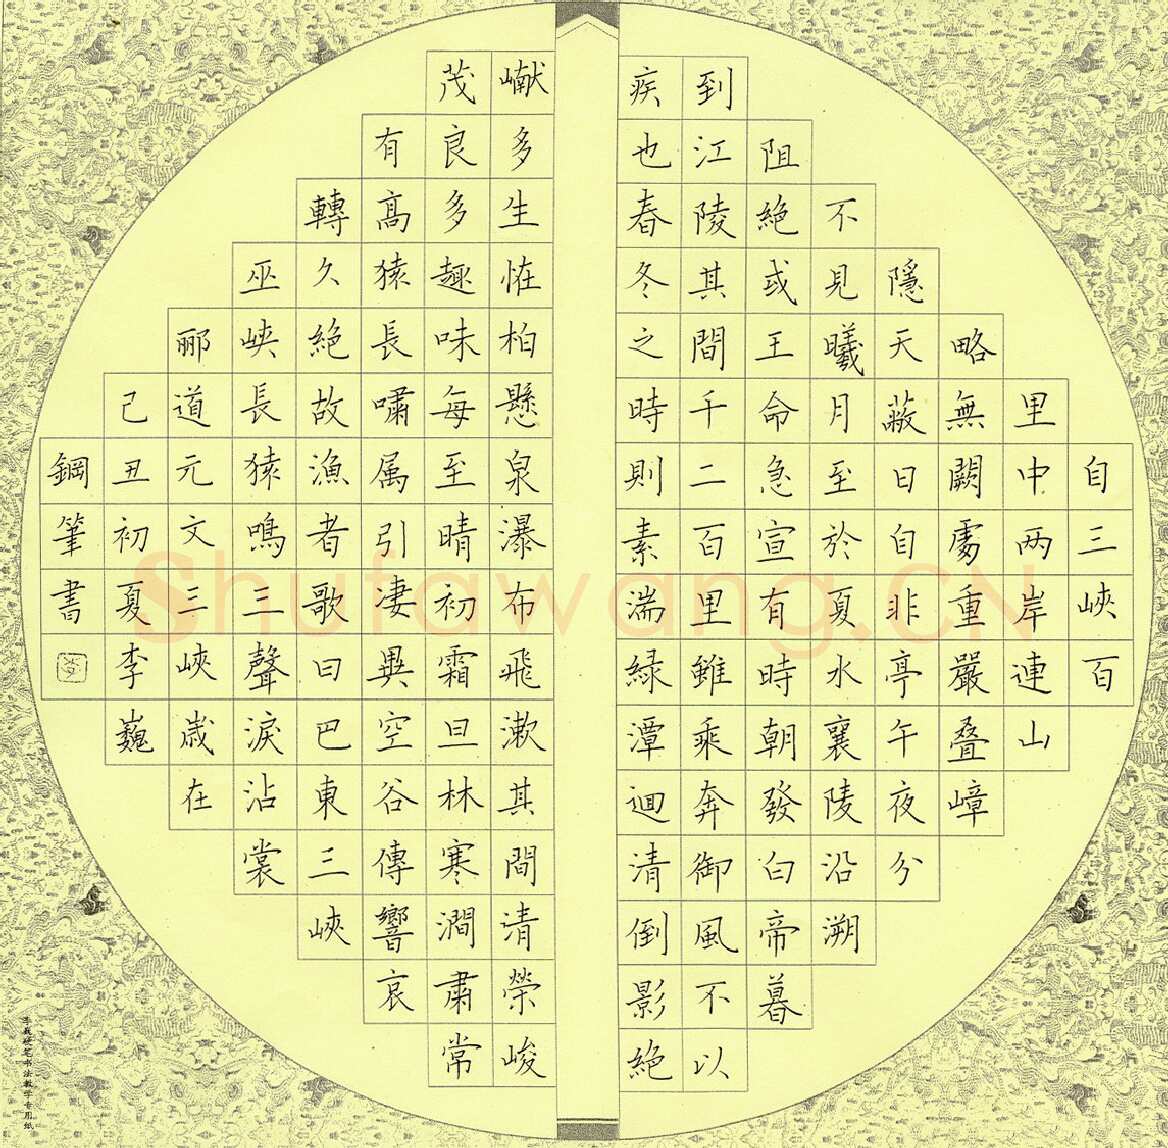 自三峽百
里中两岸連山
略無闕處重嚴叠嶂
隱天蔽日自非亭午夜分
不見曦月至於夏水襄陵沿溯
阻絕或王命急宣有時朝發白帝暮
到江陵其間千二百里雖乘奔御風不以
疾也春冬之時則素湍緑潭迴清倒影絕
巘多生恠柏懸泉瀑布飛漱其間清榮峻
茂良多趣味每至晴初霜旦林寒澗肅常
有高猿長嘯属引淒異空谷傳響哀
轉久絕故漁者歌曰巴東三峽
巫峽長猿鳴三聲淚沾裳
酈道元文三峽歲在
己丑初夏李巍
鋼筆書
李巍硬笔书法教学专用纸
Shufawang.CN